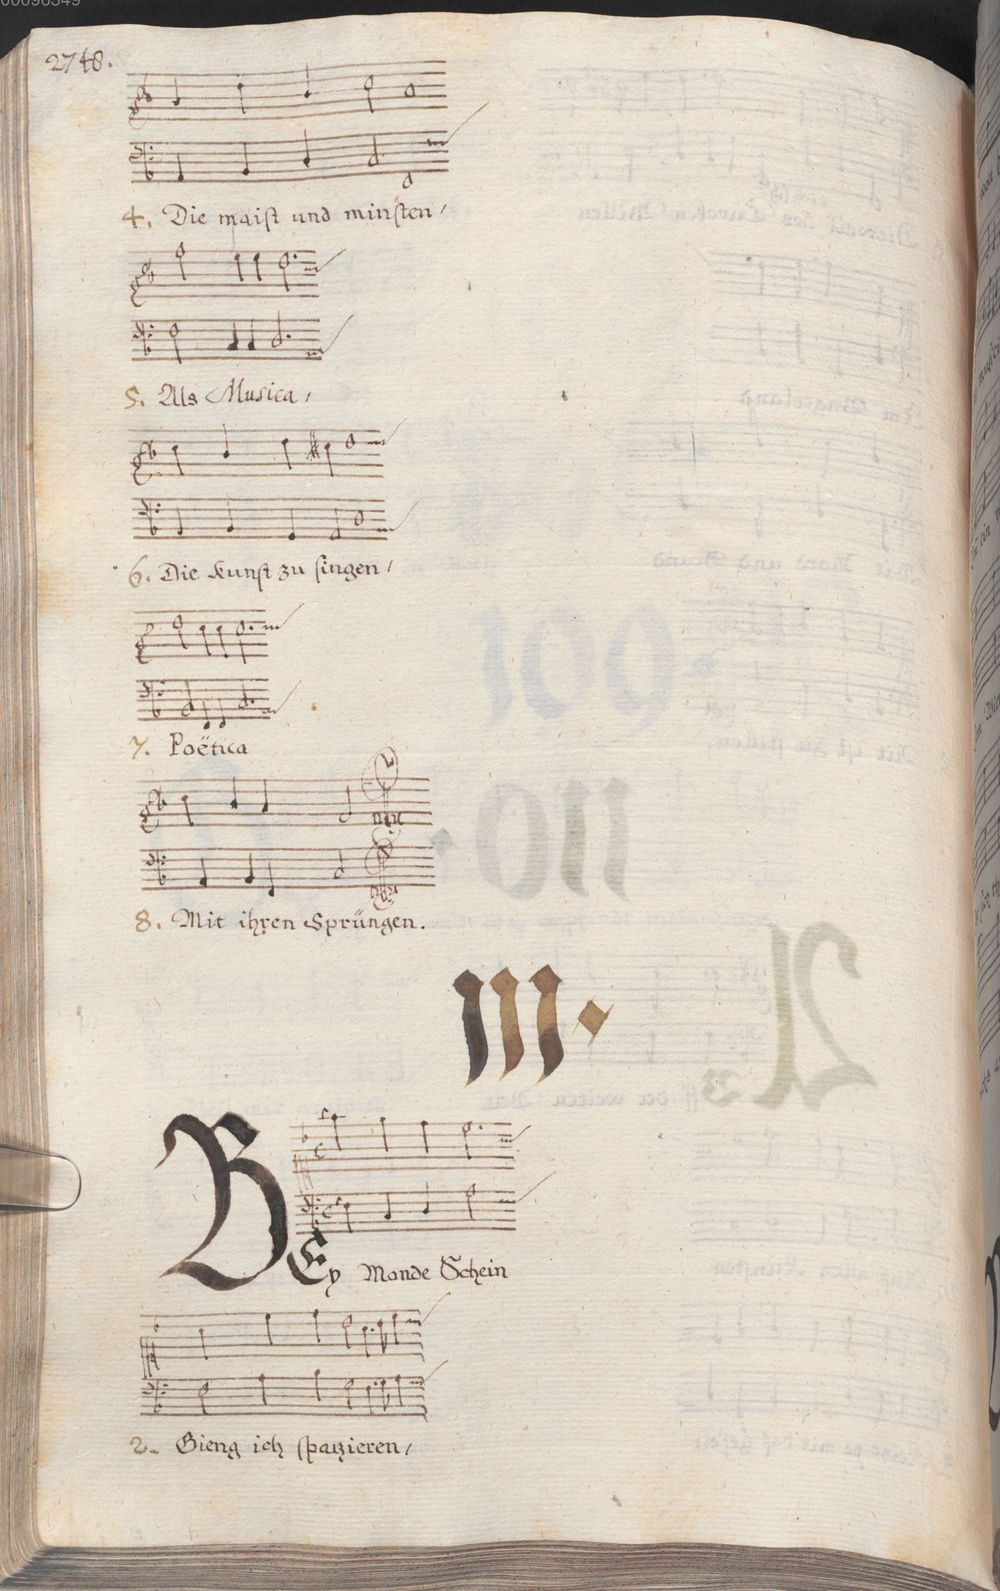 00096349
2748.
4. Die maist und minsten,
5. Als Musica,
6. Die kunst zu singen,
7. Poëtica
8. Mit ihren Sprüngen.
III.
BEy Monde Schein
2. Gieng ich spatzieren,